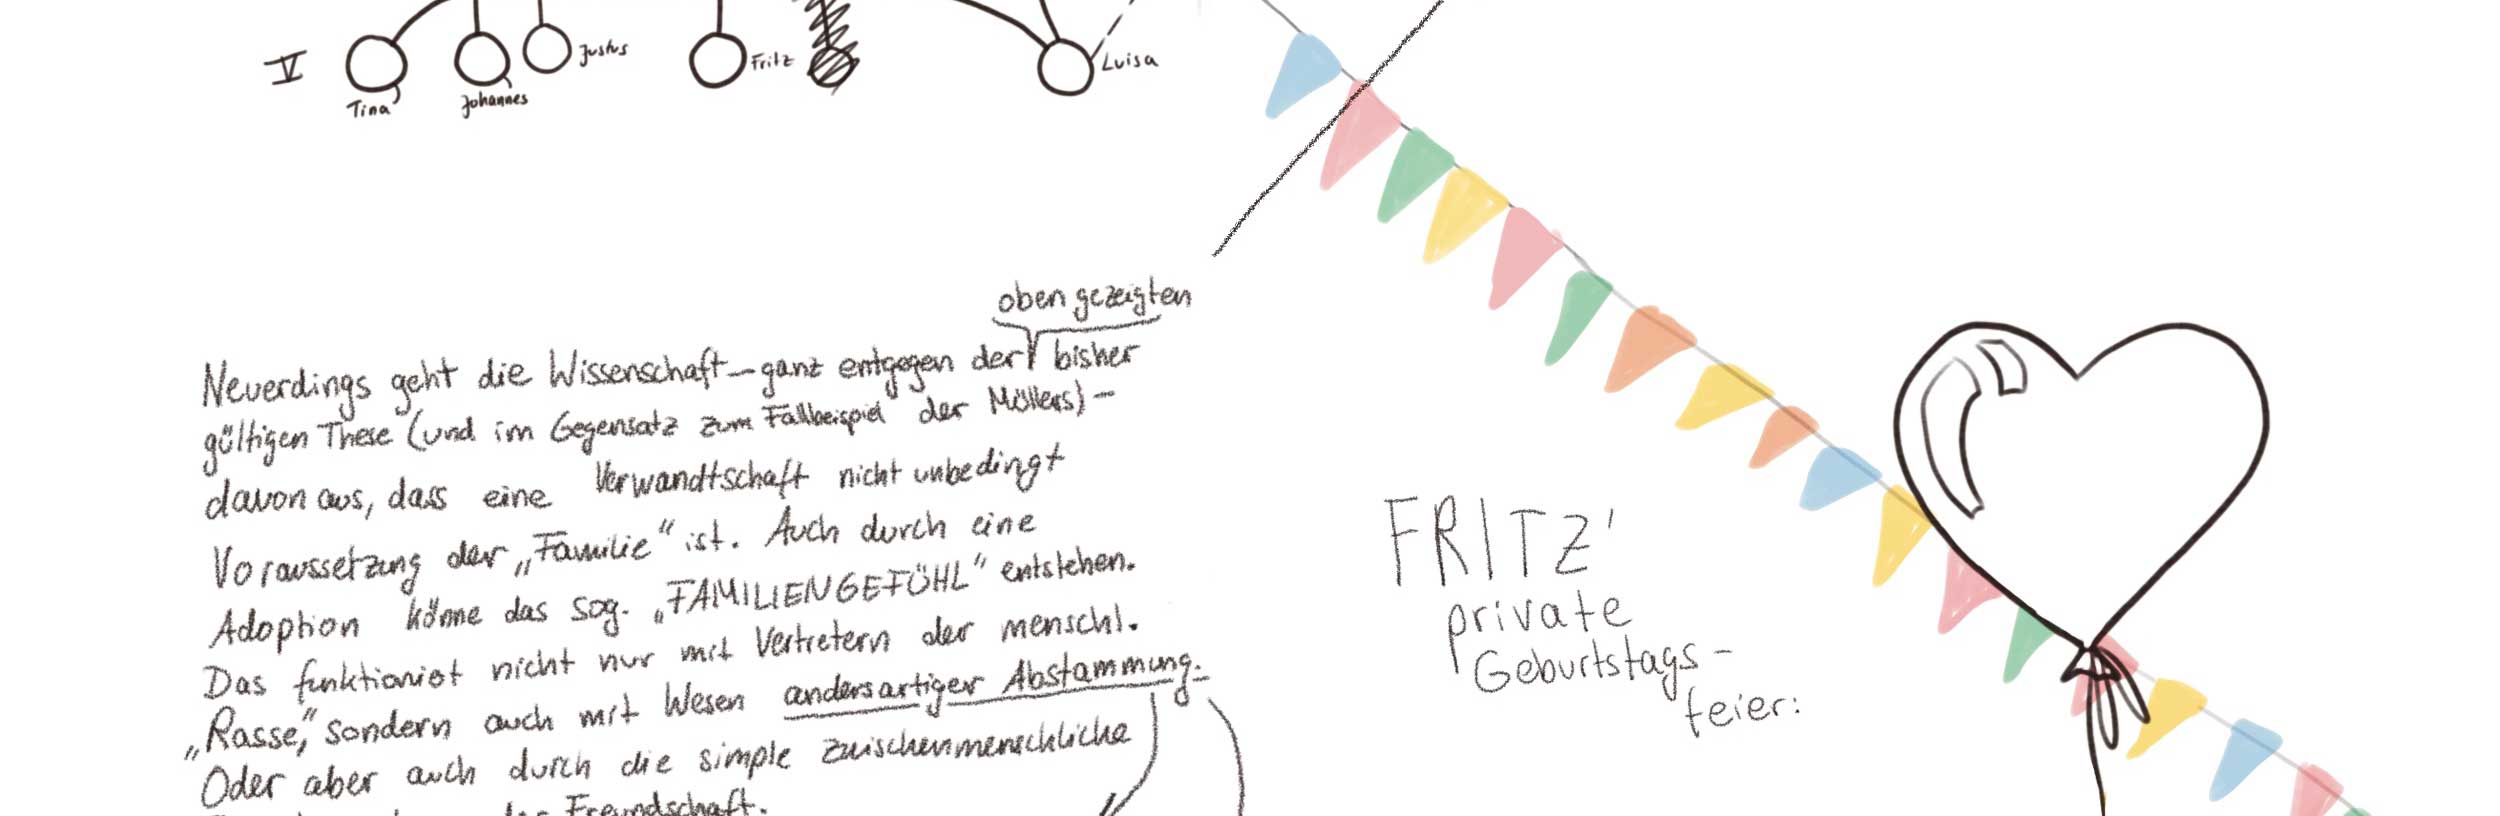 V
Tina
Johannes
Justus
Fritz
Luisa
oben gezeigten
Neuerdings geht die Wissenschaft – ganz entgegen der bisher
gültigen These (und im Gegensatz zum Fallbeispiel der Müllers) –
davon aus, dass eine Verwandtschaft nicht unbedingt
Voraussetzung der „Familie“ ist. Auch durch eine
Adoption könne das sog. „FAMILIENGEFÜHL“ entstehen.
Das funktioniet nicht nur mit Vertretern der menschl.
„Rasse“, sondern auch mit Wesen andersartiger Abstammung.
Oder aber auch durch die simple zwischenmenschliche
Freundschaft.
FRITZ'
private
Geburtstags-
feier: